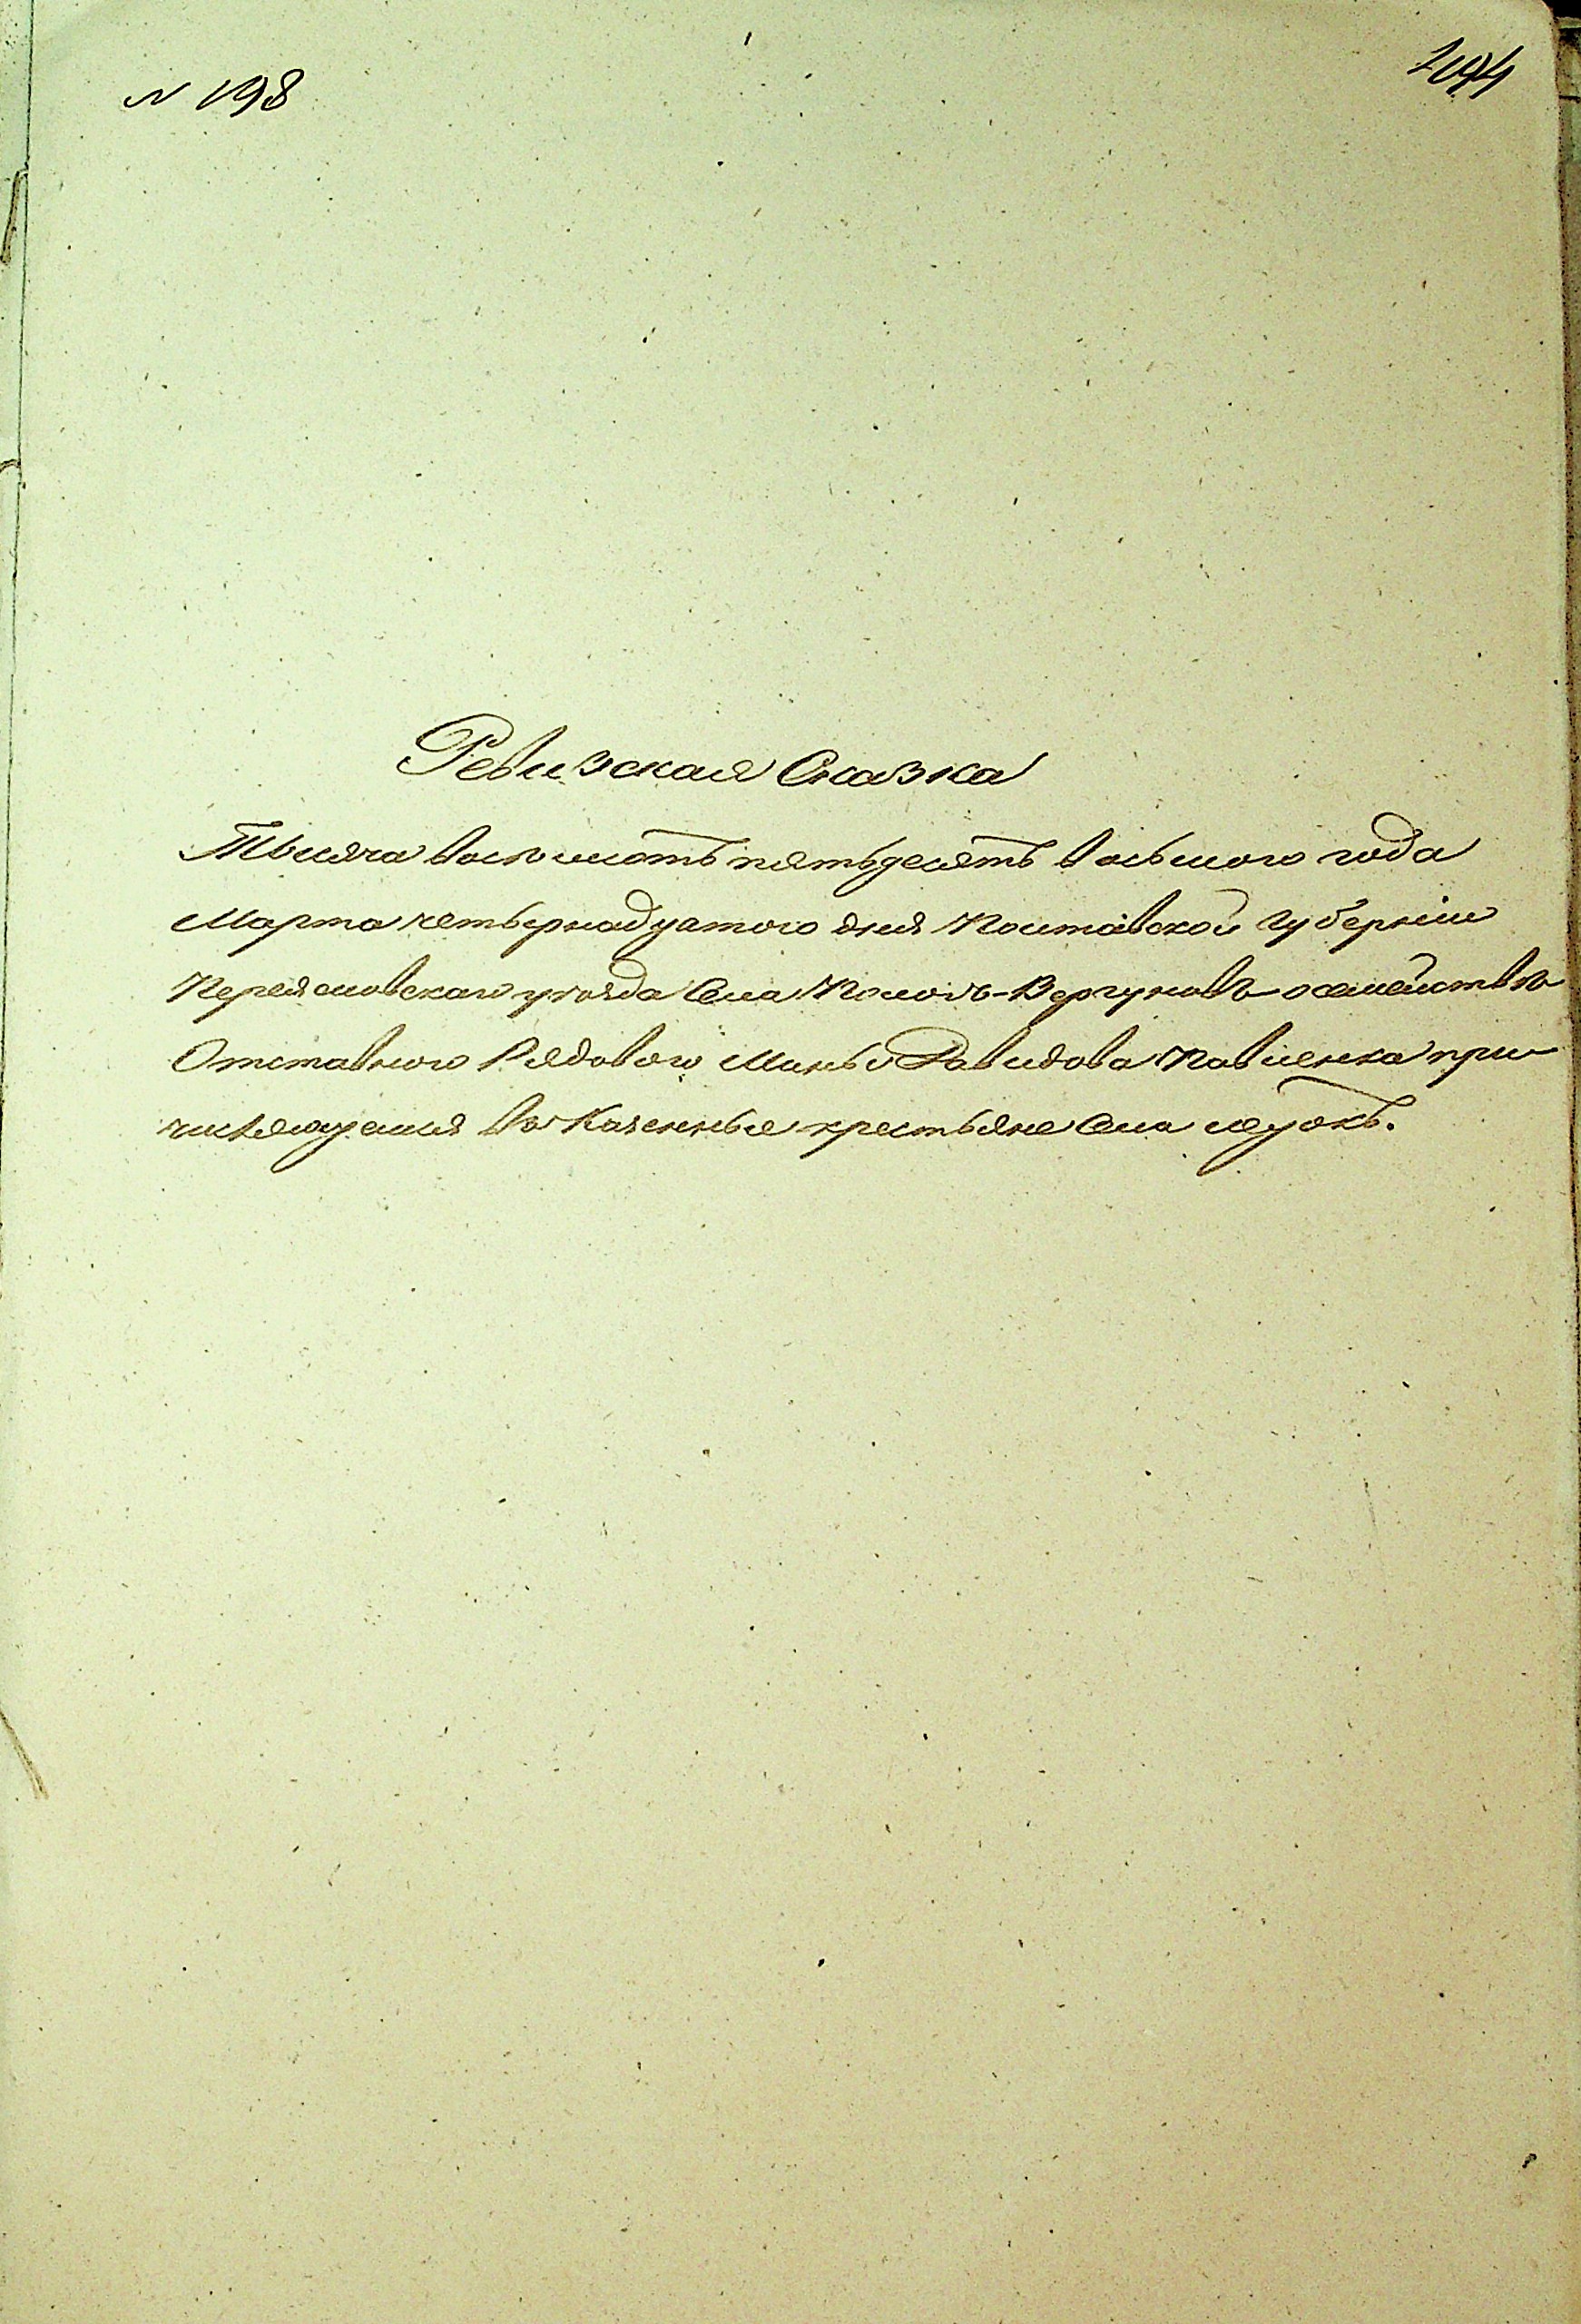 N 198
Ревизская Сказка
Тысяча восемьсотъ пятьдесятъ восьмого года
Марта четвернадцатого дня Полтавской губерніи
Переясловскаго уѣзда Села Помокл-Вергуновъ о семействѣ
Отставного Рядового Мины Давидова Павленка при
числяющемся въ Казенные крестьяне Села